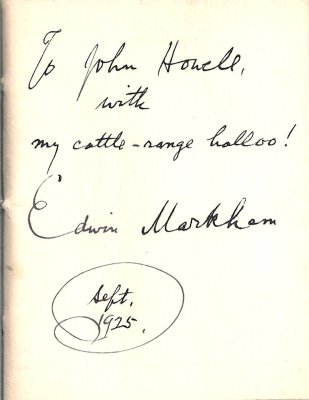 To John Howell,
with
my cattle-range halloo!
Edwin Markham
Sept.
1925.